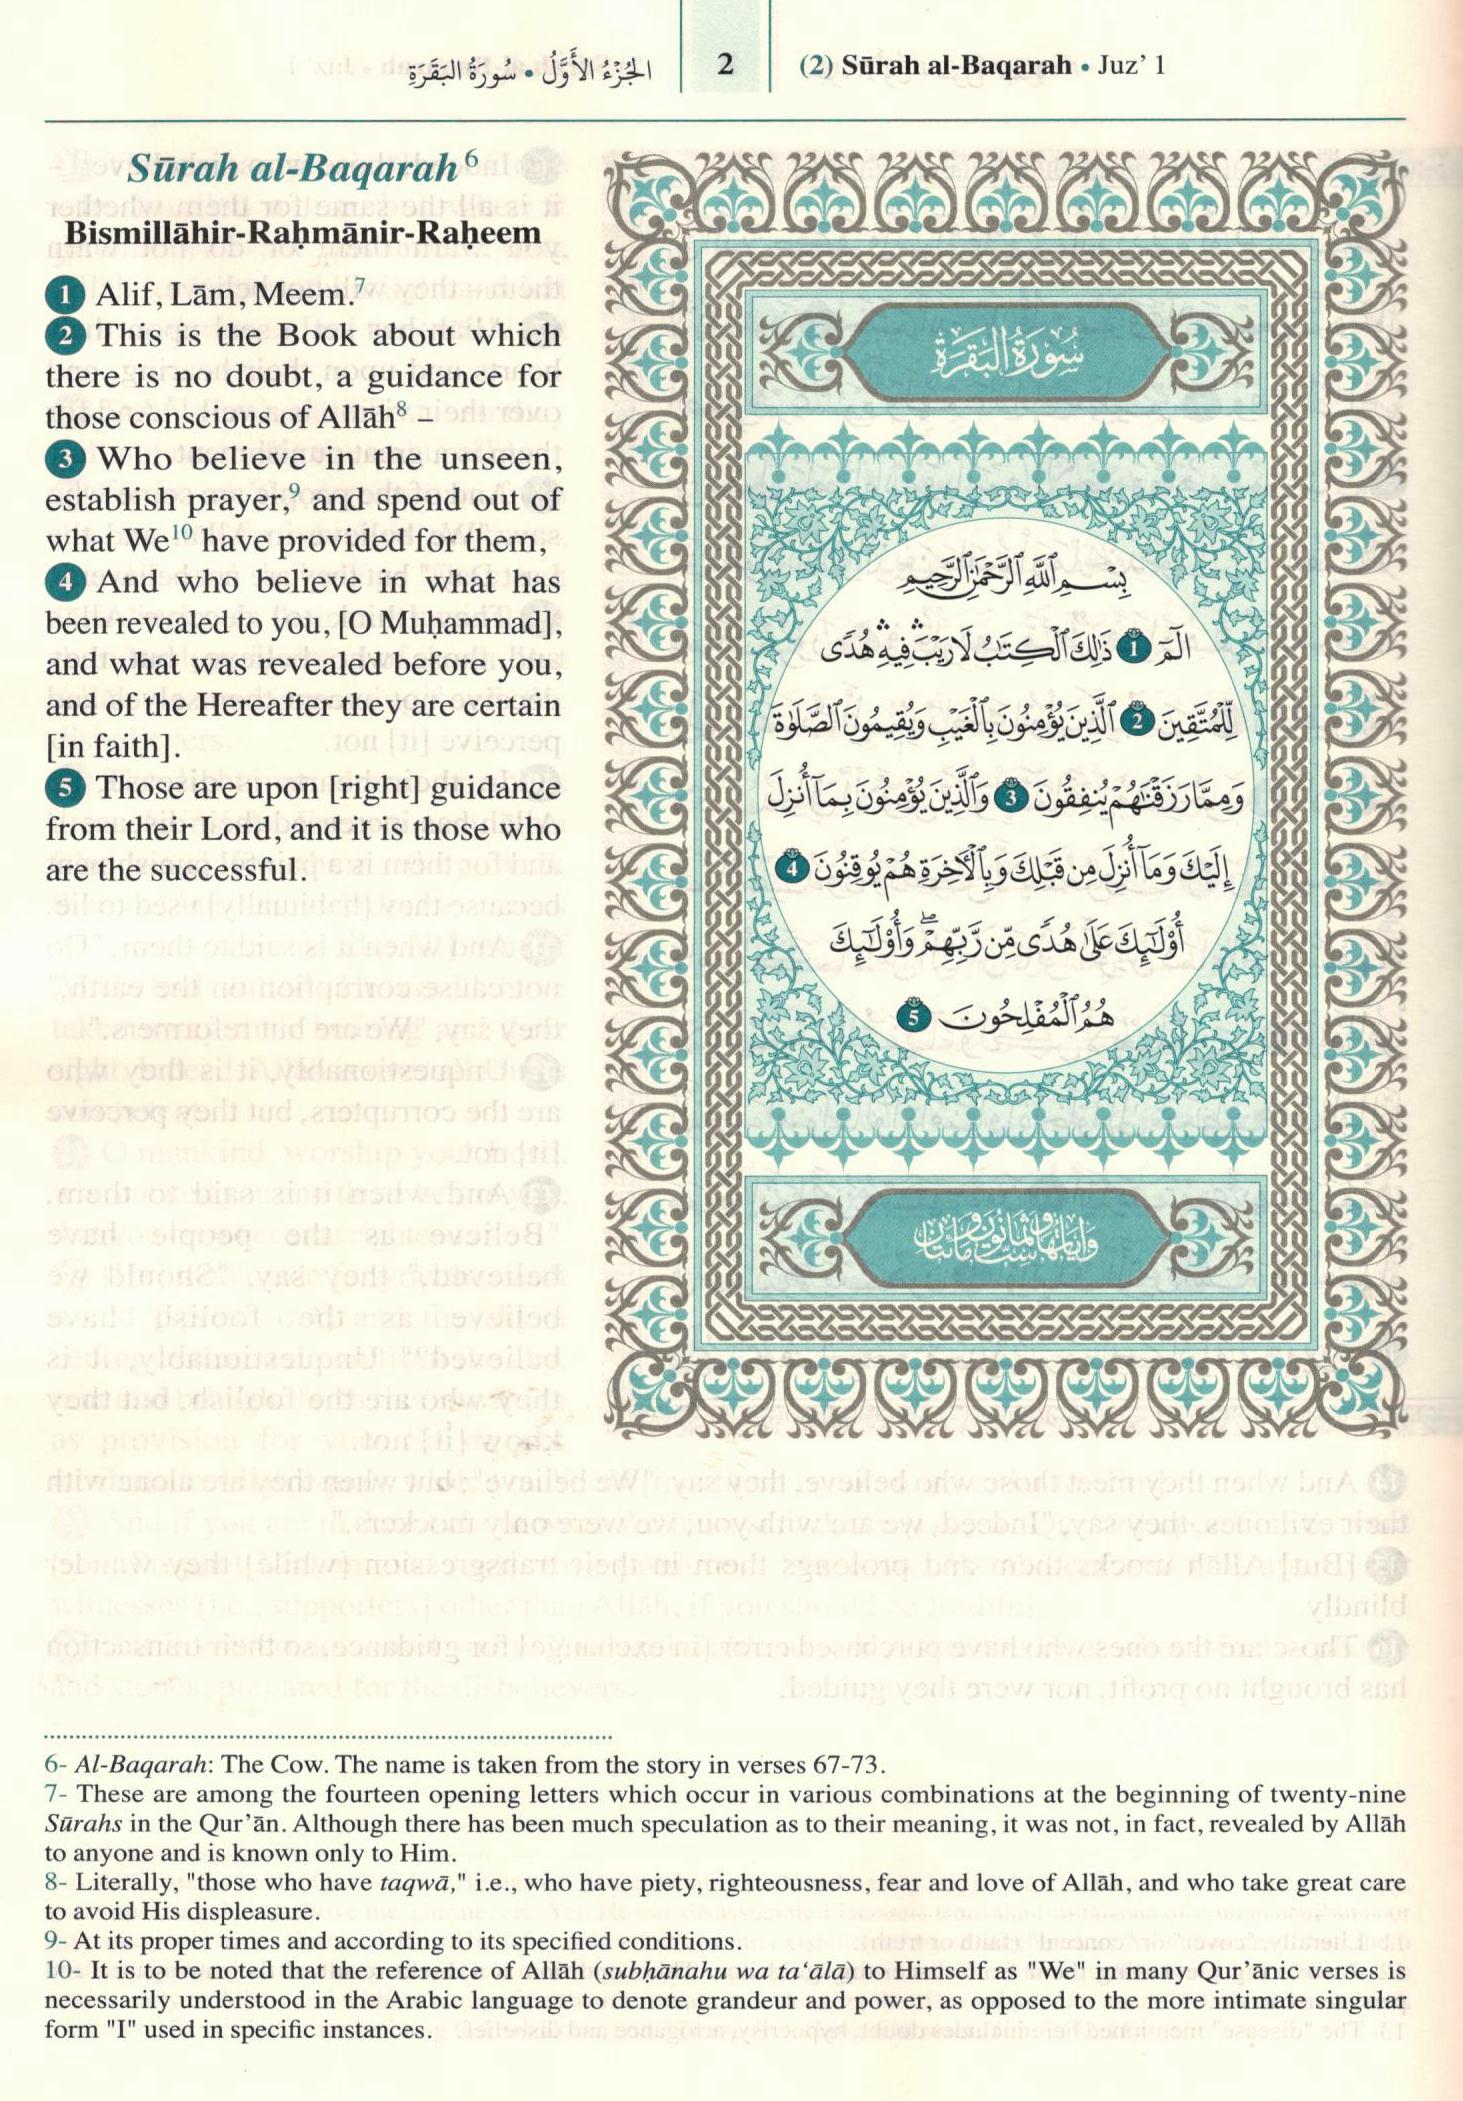 الجُزْءُ الأَوَّلُ • سُورَةُ البَقَرَةِ
2
(2) Sūrah al-Baqarah • Juz’ 1
Sūrah al-Baqarah6
Bismillāhir-Raḥmānir-Raḥeem
1 Alif, Lām, Meem.7
2 This is the Book about which
there is no doubt, a guidance for
those conscious of Allāh8 –
3 Who believe in the unseen,
establish prayer,9 and spend out of
what We10 have provided for them,
4 And who believe in what has
been revealed to you, [O Muḥammad],
and what was revealed before you,
and of the Hereafter they are certain
[in faith].
5 Those are upon [right] guidance
from their Lord, and it is those who
are the successful.
سُورَةُ البَقَرَةِ
بِسْمِ ٱللَّهِ ٱلرَّحْمَٰنِ ٱلرَّحِيمِ
الٓمٓ 1 ذَٰلِكَ ٱلْكِتَٰبُ لَا رَيْبَ ۛ فِيهِ ۛ هُدًى
لِّلْمُتَّقِينَ 2 ٱلَّذِينَ يُؤْمِنُونَ بِٱلْغَيْبِ وَيُقِيمُونَ ٱلصَّلَوٰةَ
وَمِمَّا رَزَقْنَٰهُمْ يُنفِقُونَ 3 وَٱلَّذِينَ يُؤْمِنُونَ بِمَآ أُنزِلَ
إِلَيْكَ وَمَآ أُنزِلَ مِن قَبْلِكَ وَبِٱلْأَخِرَةِ هُمْ يُوقِنُونَ 4
أُو۟لَٰٓئِكَ عَلَىٰ هُدًى مِّن رَّبِّهِمْ ۖ وَأُو۟لَٰٓئِكَ
هُمُ ٱلْمُفْلِحُونَ 5
وَآيَاتُهَا سِتٌّ وَثَمَانُونَ وَمِائَتَانِ
6- Al-Baqarah: The Cow. The name is taken from the story in verses 67-73.
7- These are among the fourteen opening letters which occur in various combinations at the beginning of twenty-nine
Sūrahs in the Qur’ān. Although there has been much speculation as to their meaning, it was not, in fact, revealed by Allāh
to anyone and is known only to Him.
8- Literally, "those who have taqwā," i.e., who have piety, righteousness, fear and love of Allāh, and who take great care
to avoid His displeasure.
9- At its proper times and according to its specified conditions.
10- It is to be noted that the reference of Allāh (subḥānahu wa ta‘ālā) to Himself as "We" in many Qur’ānic verses is
necessarily understood in the Arabic language to denote grandeur and power, as opposed to the more intimate singular
form "I" used in specific instances.